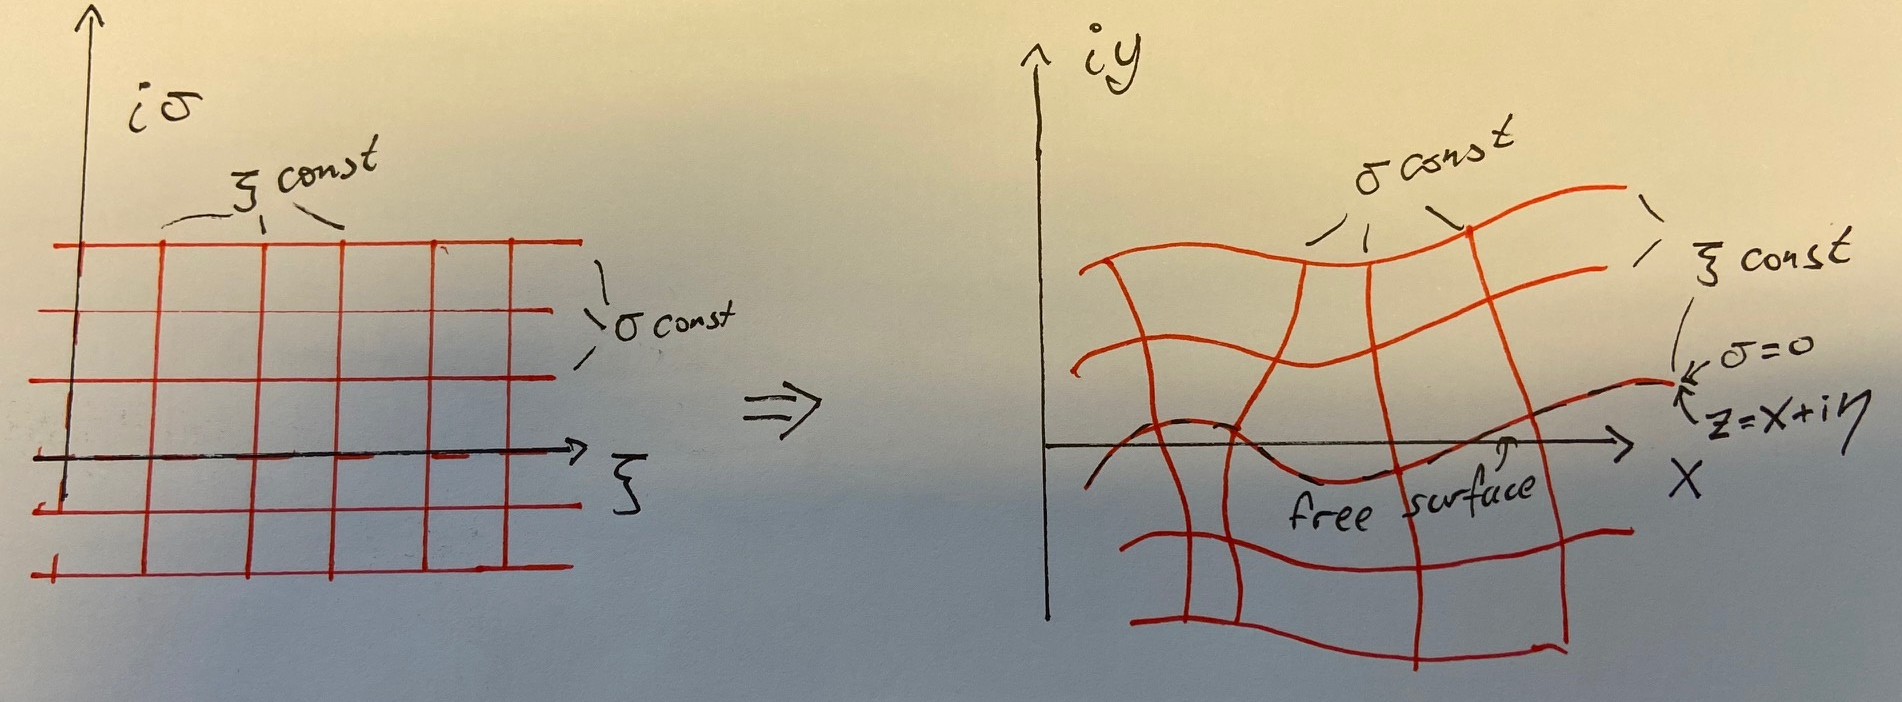 iσ
ξ const
σ const
ξ
⇒
iy
σ const
ξ const
σ=0
z=x+iη
free surface
x